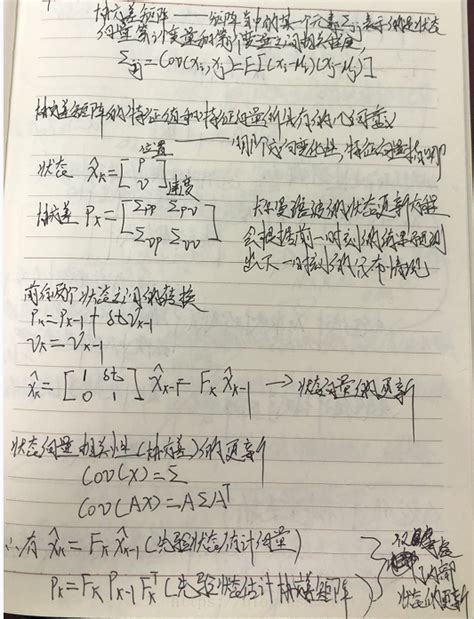 协方差矩阵——矩阵当中的某一个元素Σij表示的是状态
向量第i个变量和第j个变量之间相关程度
Σij = Cov(xi, xj) = E[(xi-μi)(xj-μj)]
协方差矩阵的特征值和特征向量所具有的几何意义
——哪个方向变化快, 特征向量指哪
位置
状态 x̂k = [p v] 速度
协方差 Pk = [Σpp Σpv Σvp Σvv]
卡尔曼滤波的状态更新方程
会根据前一时刻的结果预测
出下一时刻的分布情况
前后两个状态之间的转换
Pk = Pk-1 + δt vk-1
vk = vk-1
x̂k = [1 δt 0 1] x̂k-1 = Fk x̂k-1 → 状态向量的更新
状态向量相关性(协方差)的更新
Cov(X) = Σ
Cov(AX) = AΣA^T
∴有 x̂k = Fk x̂k-1 (先验状态估计向量)
Pk = Fk Pk-1 Fk^T (先验状态估计协方差矩阵)
内部
状态的更新